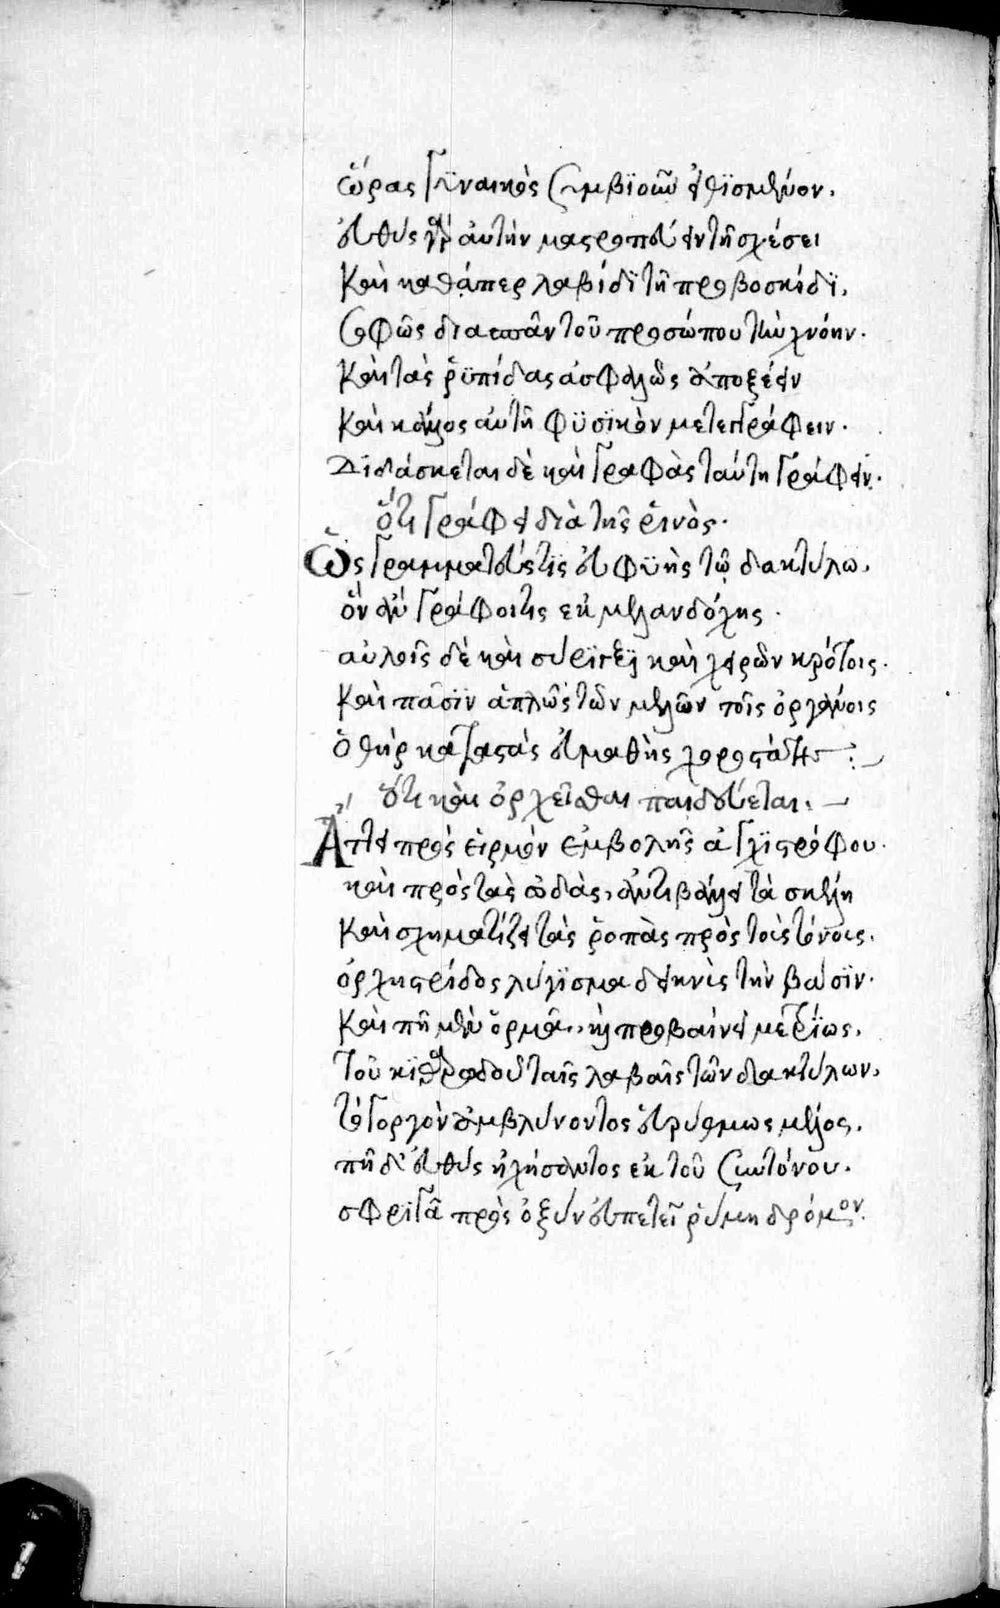 ὥρας γϋναικὸς συμβϊοῦν εἰθϊσμένον.
εὐθὺς γὰρ αὐτὴν μαστροπεύει τῇ σχέσει
καὶ καθάπερ λαβίδϊ τῇ προβοσκίδϊ,
σοφῶς διαπᾶν τοῦ προσώπου τὴν χνόην.
καὶ τὰς ῥϋπίδας ἀσφαλῶς ἀποξέειν
καὶ κάλλος αὐτῇ φϋσϊκὸν μετεγγράφειν.
Διδάσκεται δὲ καὶ γραφὰς ταύτῃ γράφειν.
ὅτι γράφει διὰ τῆς ῥινὸς.
Ὡς γραμματεύς τϊς εὐφϋὴς τῷ δακτύλῳ,
ὃν ἂν γράφοι τις ἐκ μελανδόχης.
αὐλοῖς δὲ καὶ σύριγξϊ καὶ χειρῶν κρότοις.
καὶ πᾶσϊν ἁπλῶς τῶν μελῶν τοῖς ὀργάνοις
ὁ θὴρ καταστὰς εὐμαθὴς χοροστάτης:
ὅτι καὶ ὀρχεῖσθαι παιδεύεται.
Ἅπτει πρὸς εἱρμὸν ἐμβολῆς ἀγχϊστρόφου.
καὶ πρὸς τὰς ᾠδὰς, ἀντιβάλλει τὰ σκέλη
καὶ σχηματίζει τὰς ῥοπὰς πρὸς τοὺς τόνους.
ὀρχηστρίδος λύγϊσμα δεικνὺς τὴν βάσϊν.
καὶ πῇ μὲν ὁρμᾷ, ἢ προβαίνει μετρΐως.
τοῦ κϊθαρῳδοῦ ταῖς λαβαῖς τῶν δακτύλων,
τὸ γοργὸν ἀμβλύνοντος εὐρύθμως μέλος.
πῇ δ' εὐθὺς ἠχήσαντος ἐκ τοῦ συντόνου.
σφριγᾷ πρὸς ὀξὺν εὐπετεῖ ῥύμῃ δρόμον.